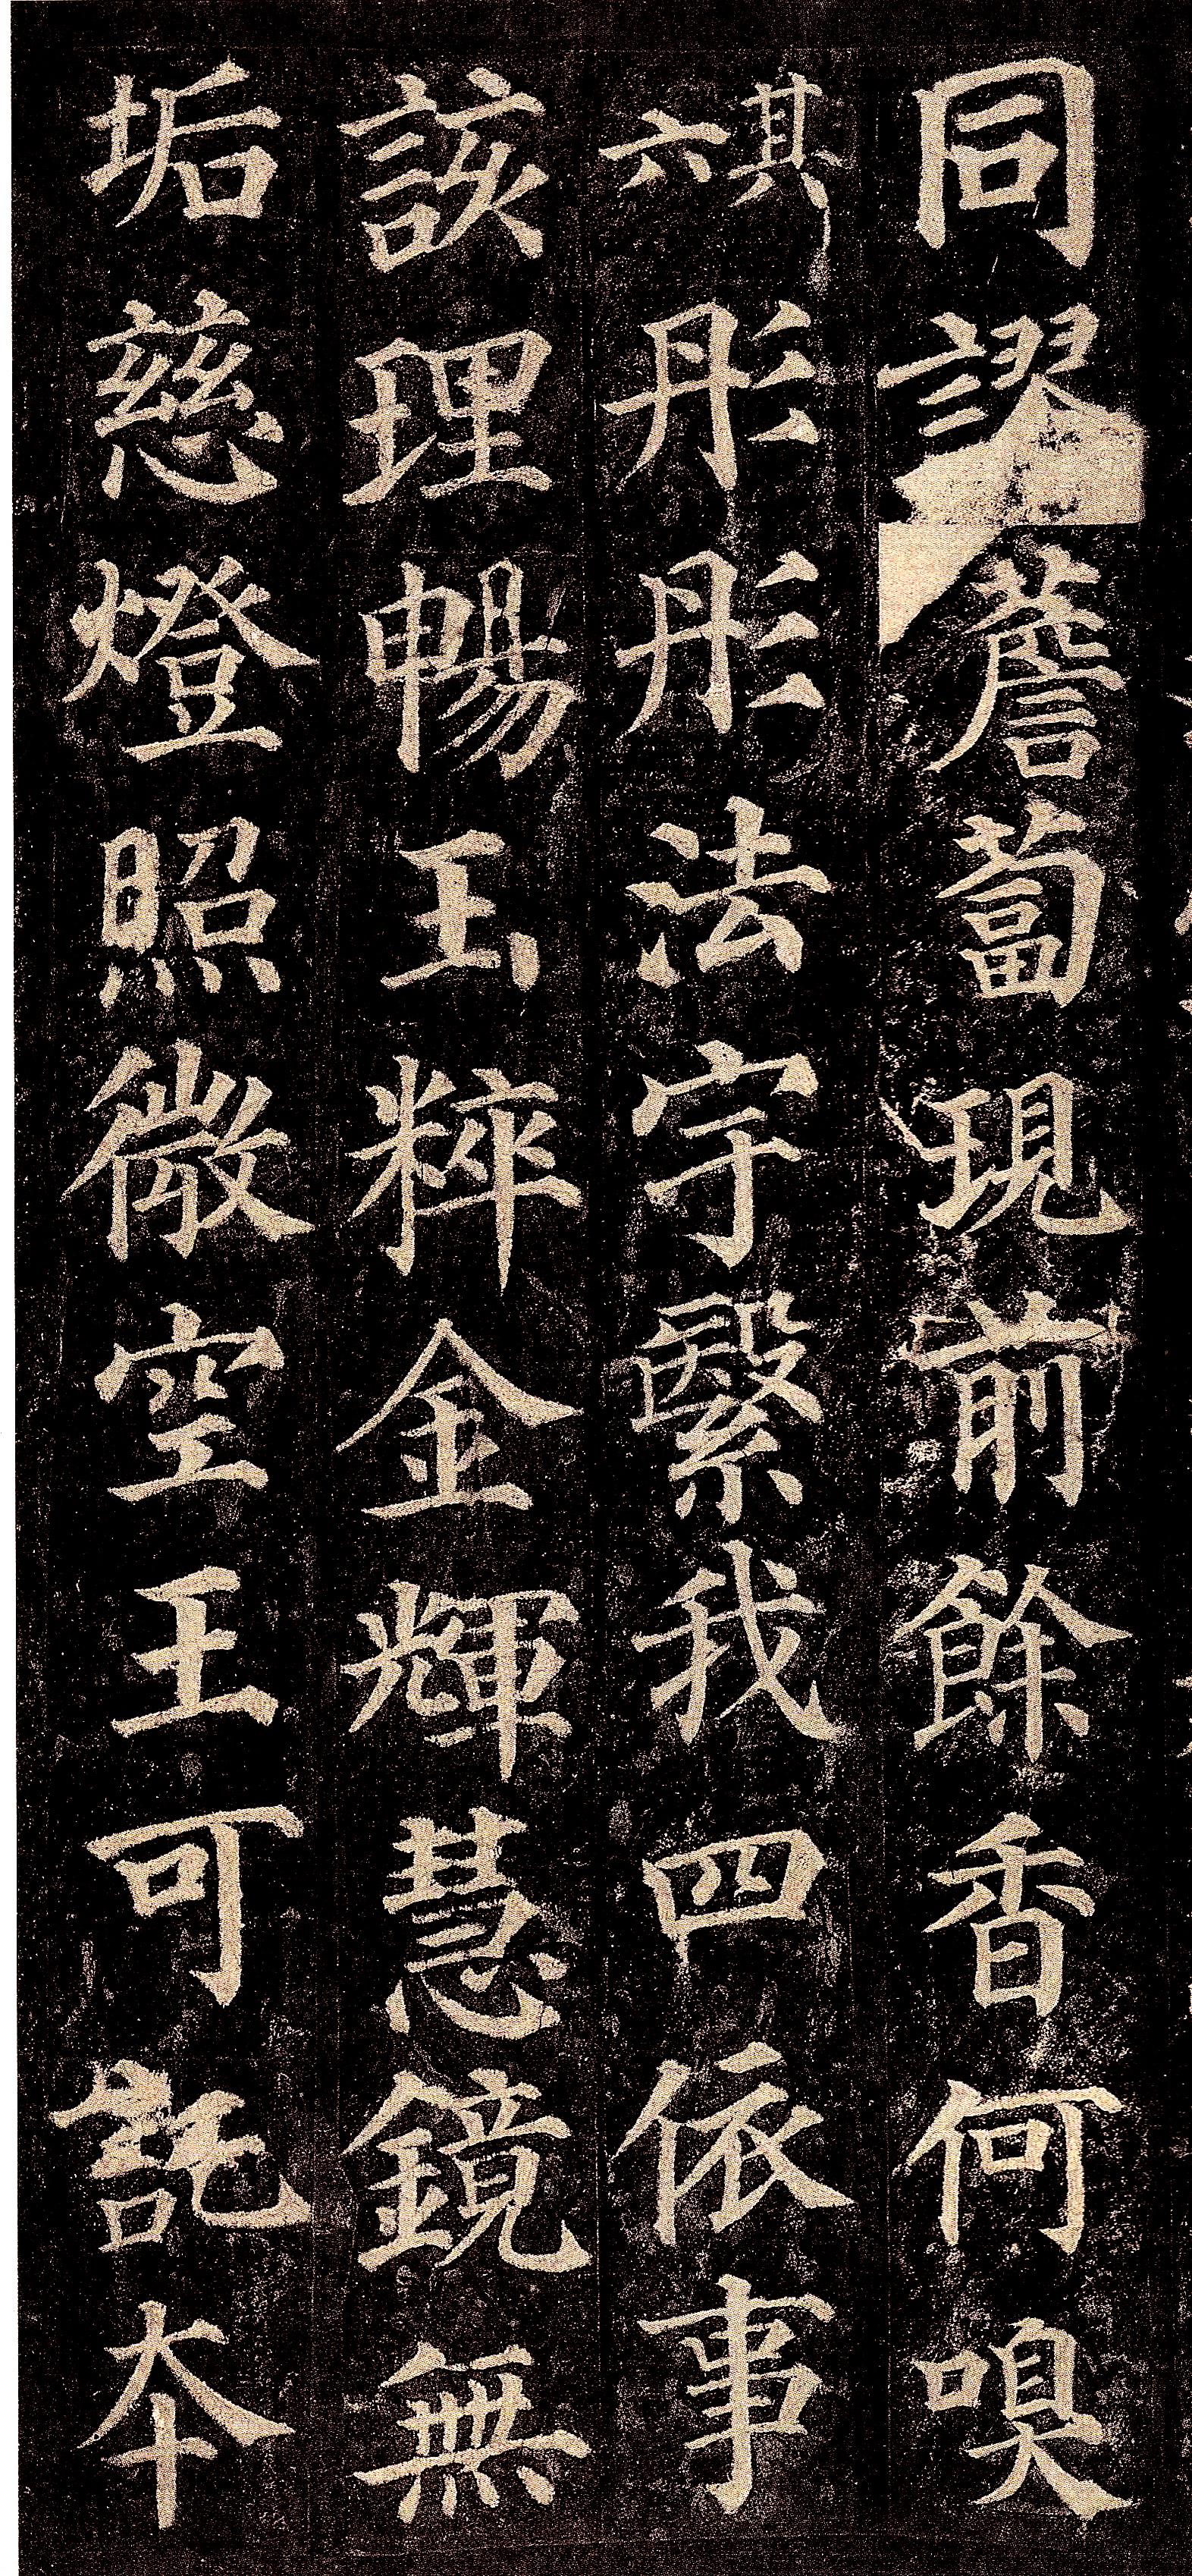 同謬薝蔔現前餘香何嗅
其六彤彤法宇繄我四依事
該理暢玉粹金輝慧鏡無
垢慈燈照微空王可託本